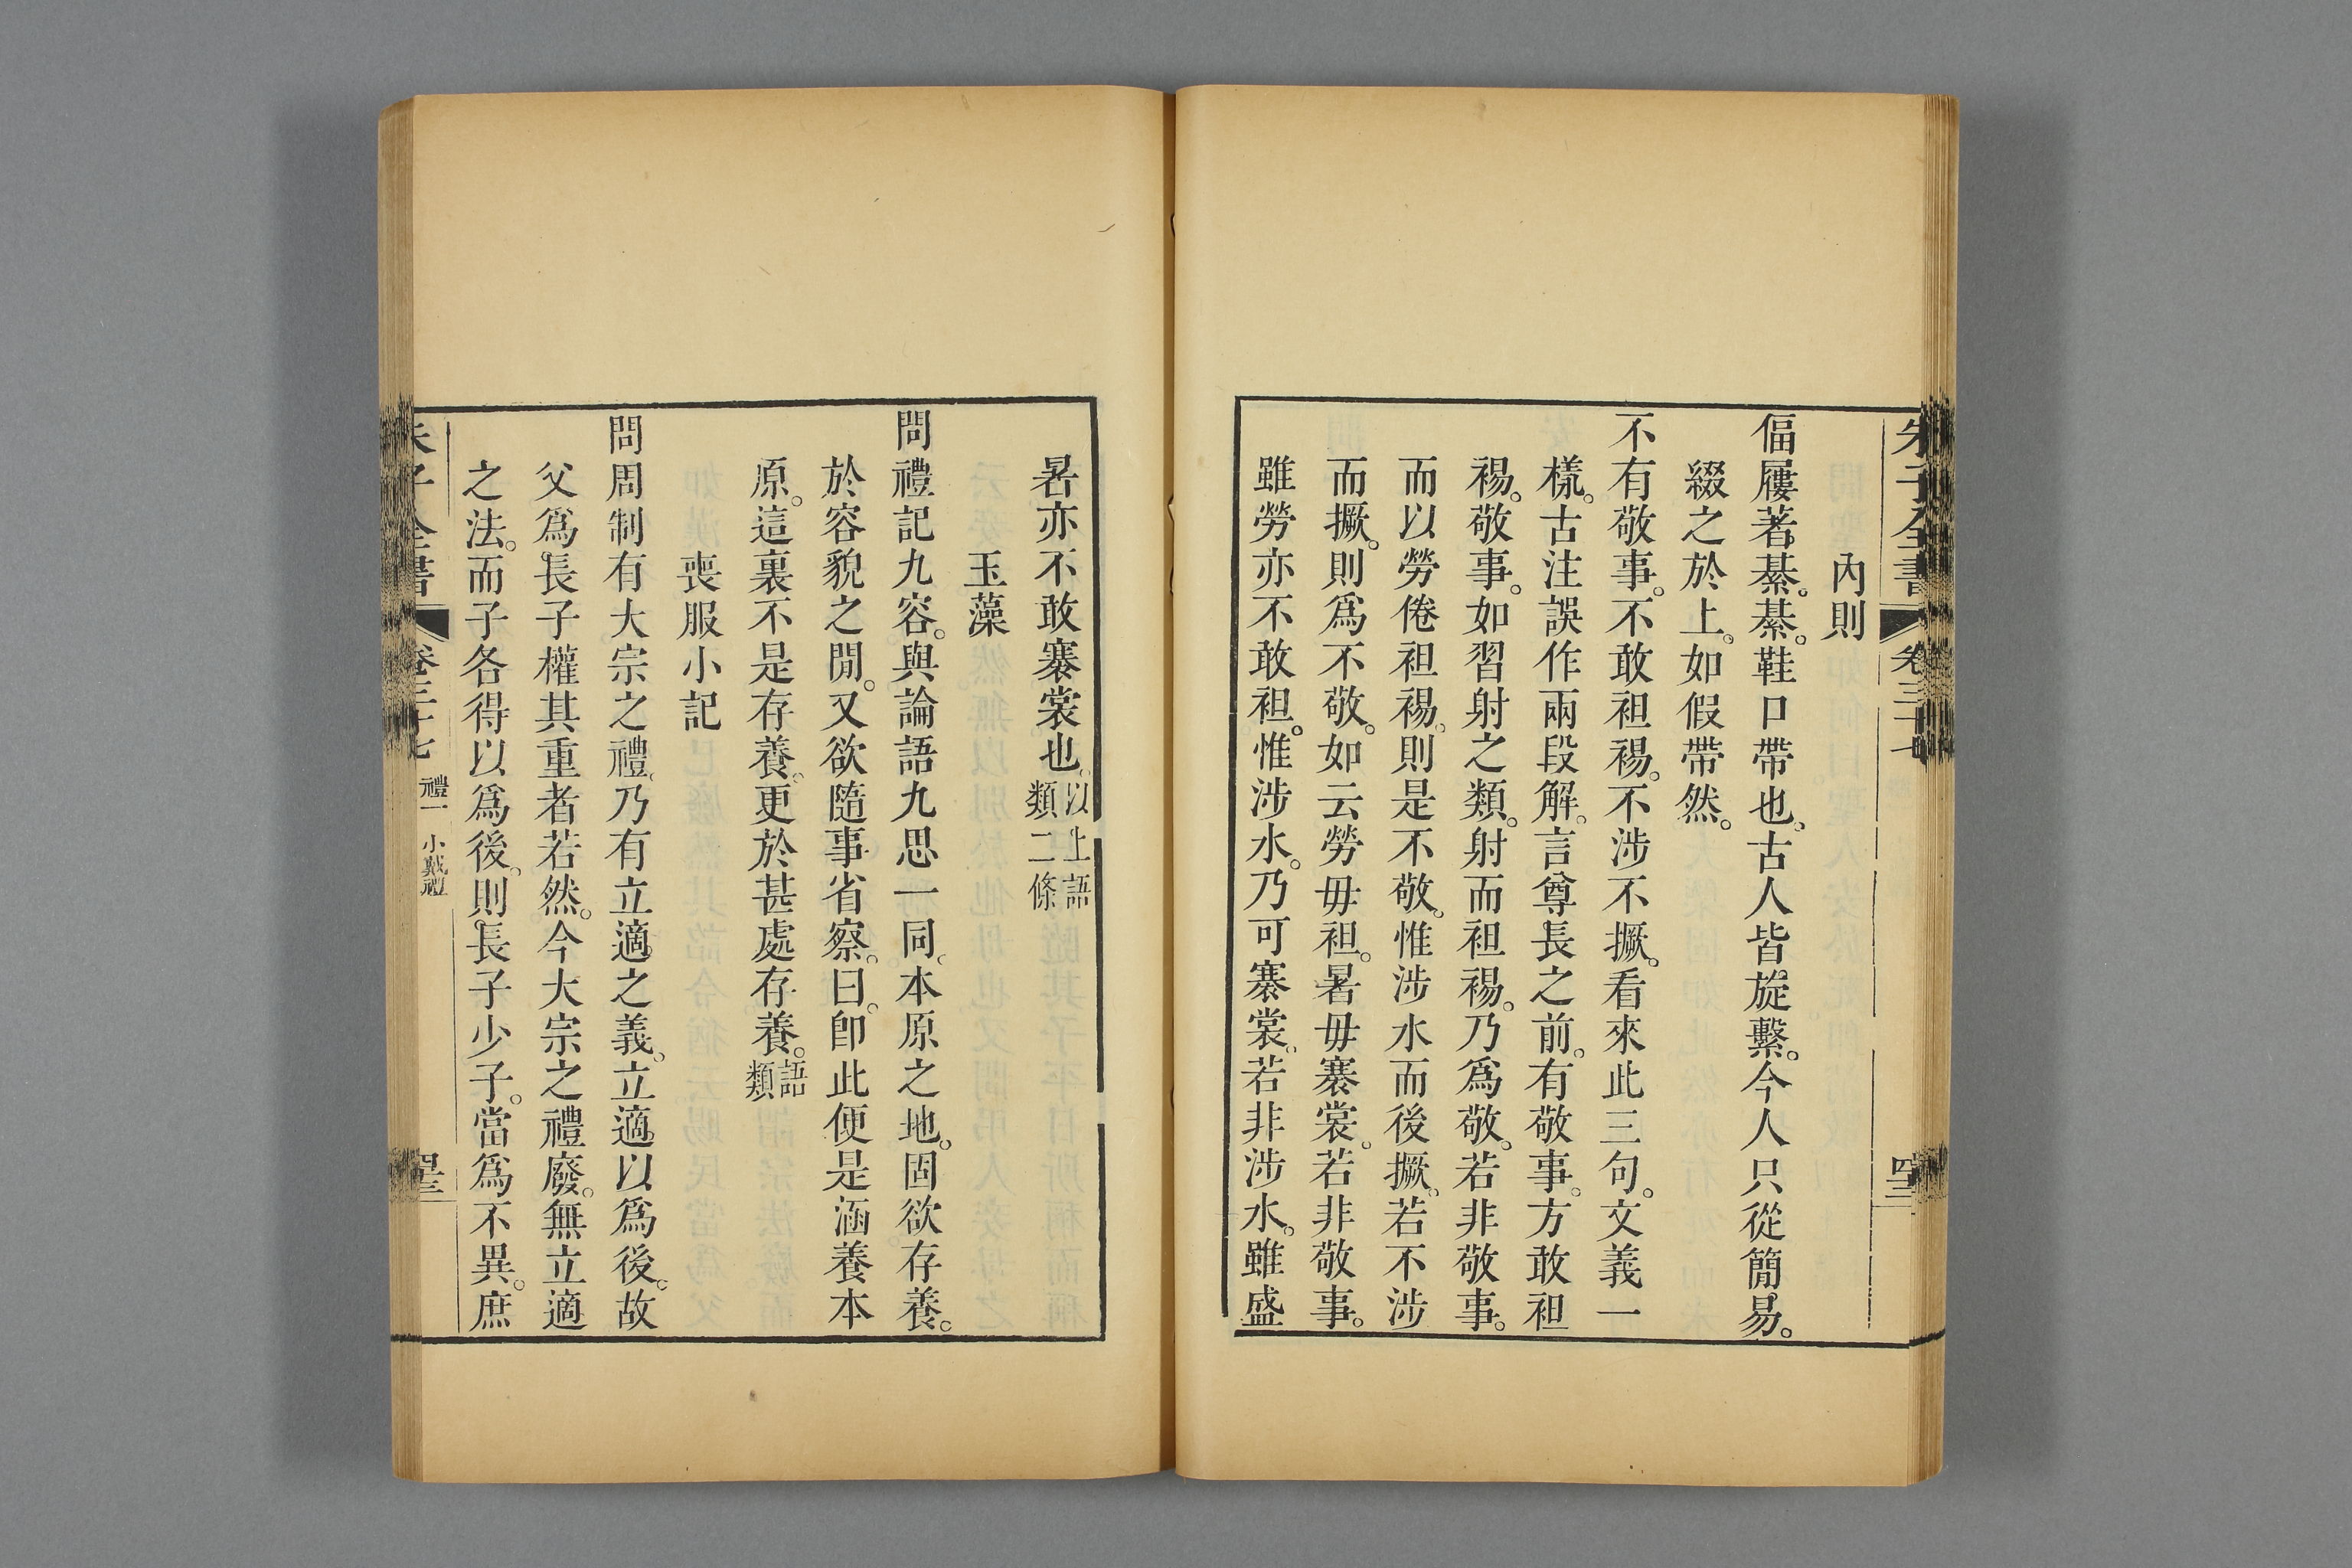 朱子全書 卷三十七 四三
內則
偪屨著綦。綦。鞋口帶也。古人皆旋繫。今人只從簡易。
綴之於上。如假帶然。
不有敬事。不敢袒裼。不涉不撅。看來此三句。文義一
樣。古注誤作兩段解。言尊長之前。有敬事。方敢袒
裼。敬事。如習射之類。射而袒裼。乃爲敬。若非敬事。
而以勞倦袒裼。則是不敬。惟涉水而後撅。若不涉
而撅。則爲不敬。如云勞毋袒。暑毋褰裳。若非敬事。
雖勞亦不敢袒。惟涉水。乃可褰裳。若非涉水。雖盛
暑亦不敢褰裳也。以上語類二條
玉藻
問禮記九容。與論語九思一同。本原之地。固欲存養。
於容貌之閒。又欲隨事省察。曰。卽此便是涵養本
原。這裏不是存養。更於甚處存養。語類
喪服小記
問周制有大宗之禮。乃有立適之義。立適以爲後。故
父爲長子權其重者若然。今大宗之禮廢。無立適
之法。而子各得以爲後。則長子少子。當爲不異。庶
朱子全書 卷三十七 禮一 小戴禮 四三